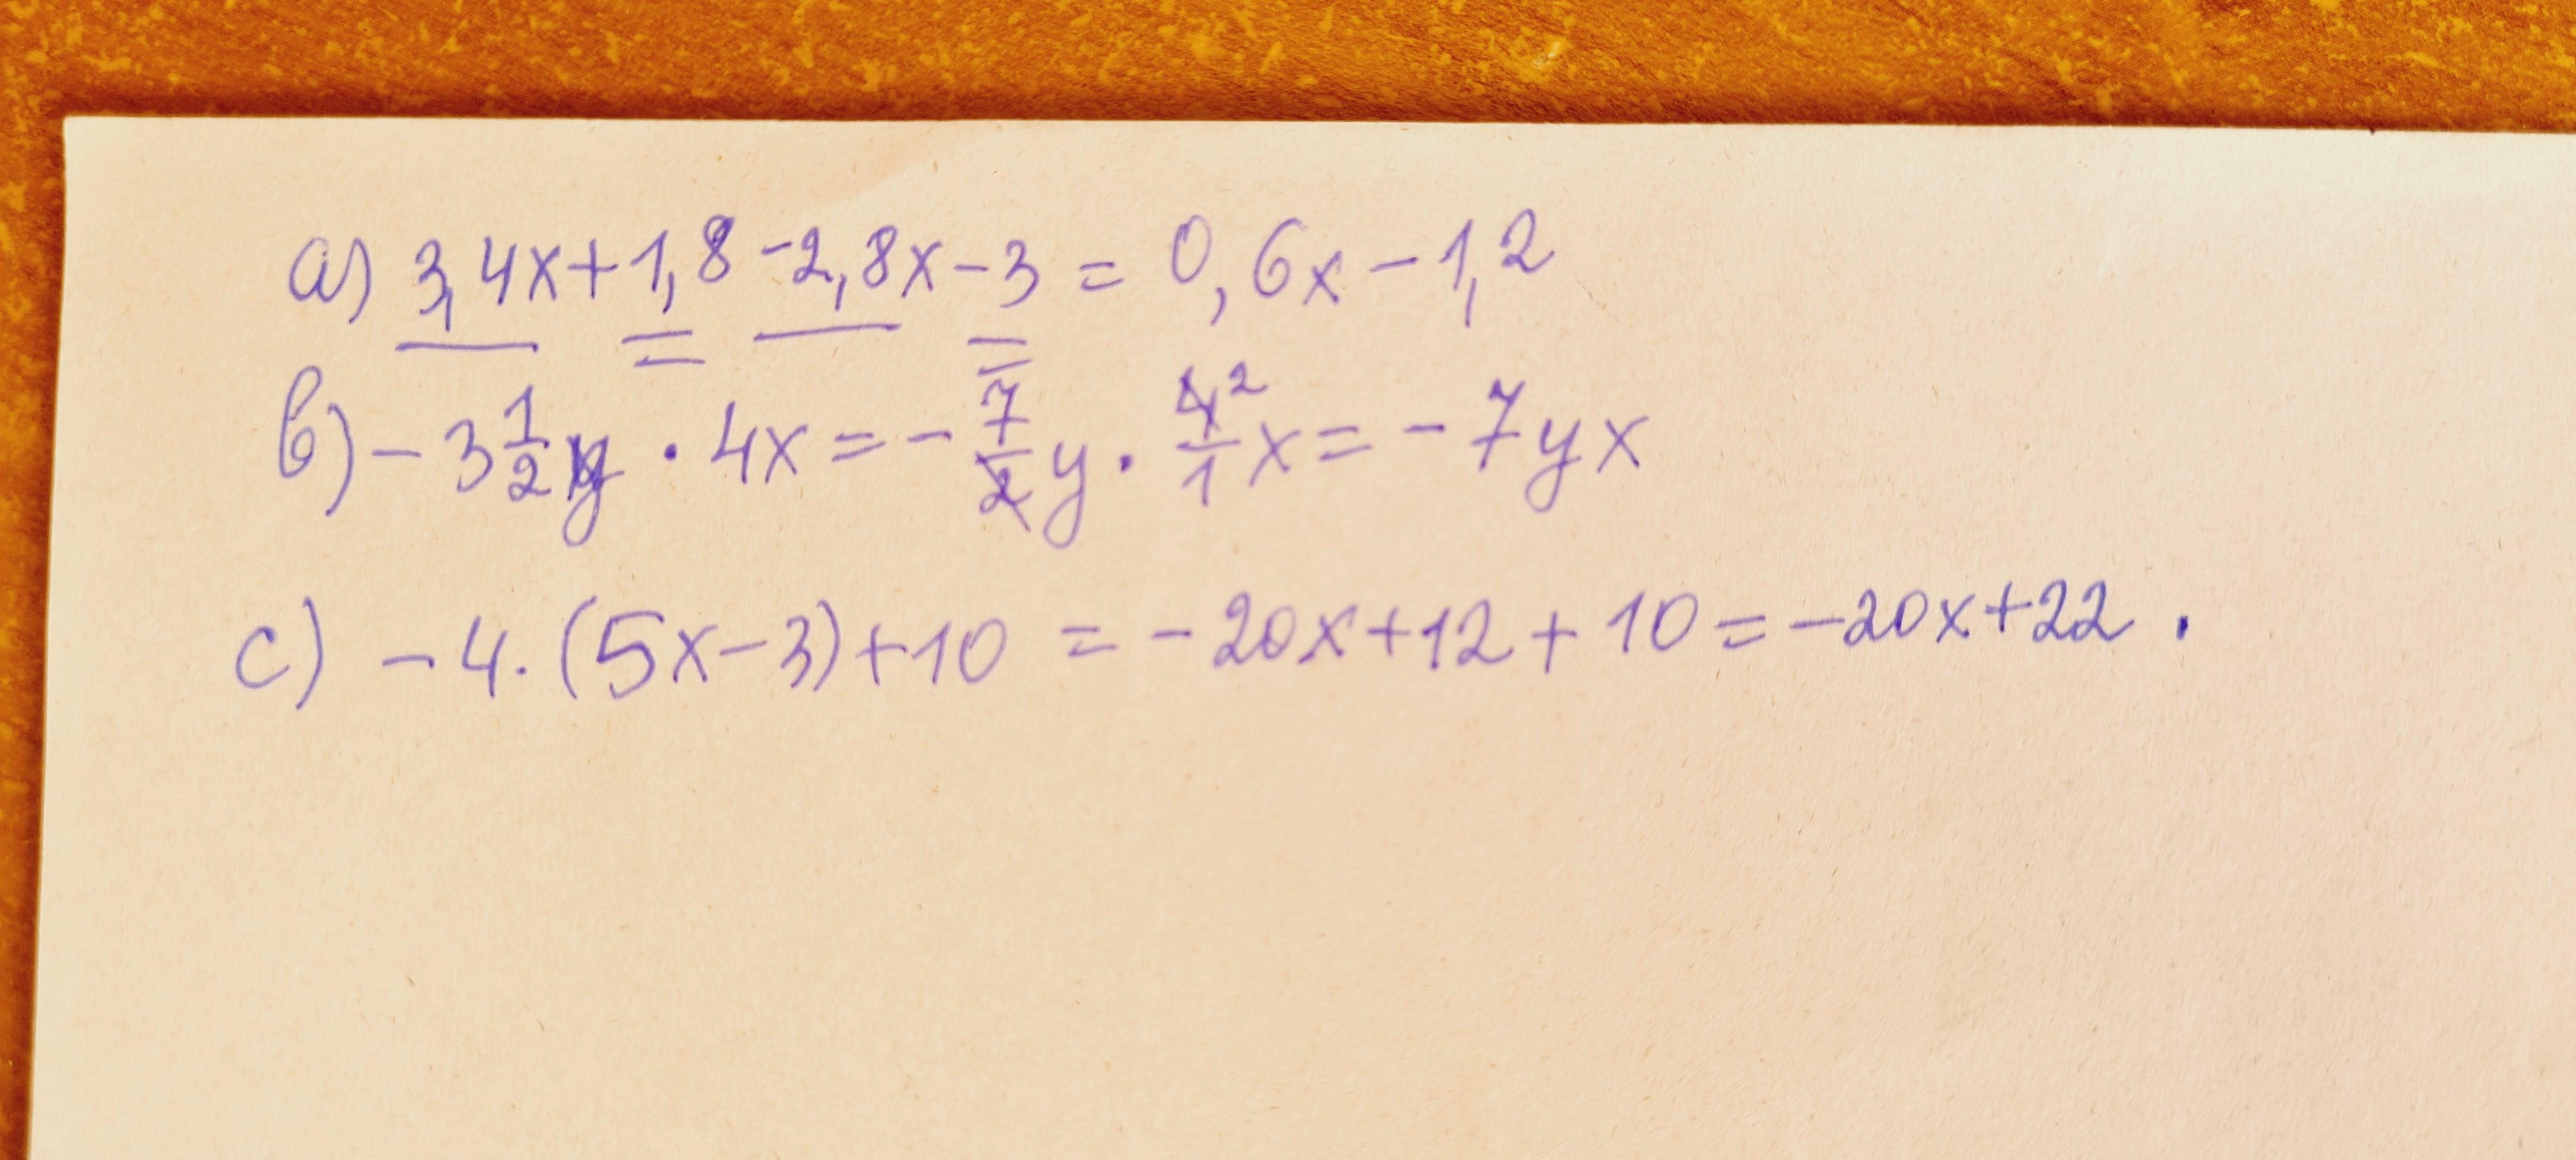 a) 3,4x+1,8-2,8x-3 = 0,6x-1,2
b) -3 1/2 y · 4x = - 7/2 y · 4²/1 x = -7yx
c) -4·(5x-3)+10 = -20x+12+10 = -20x+22.